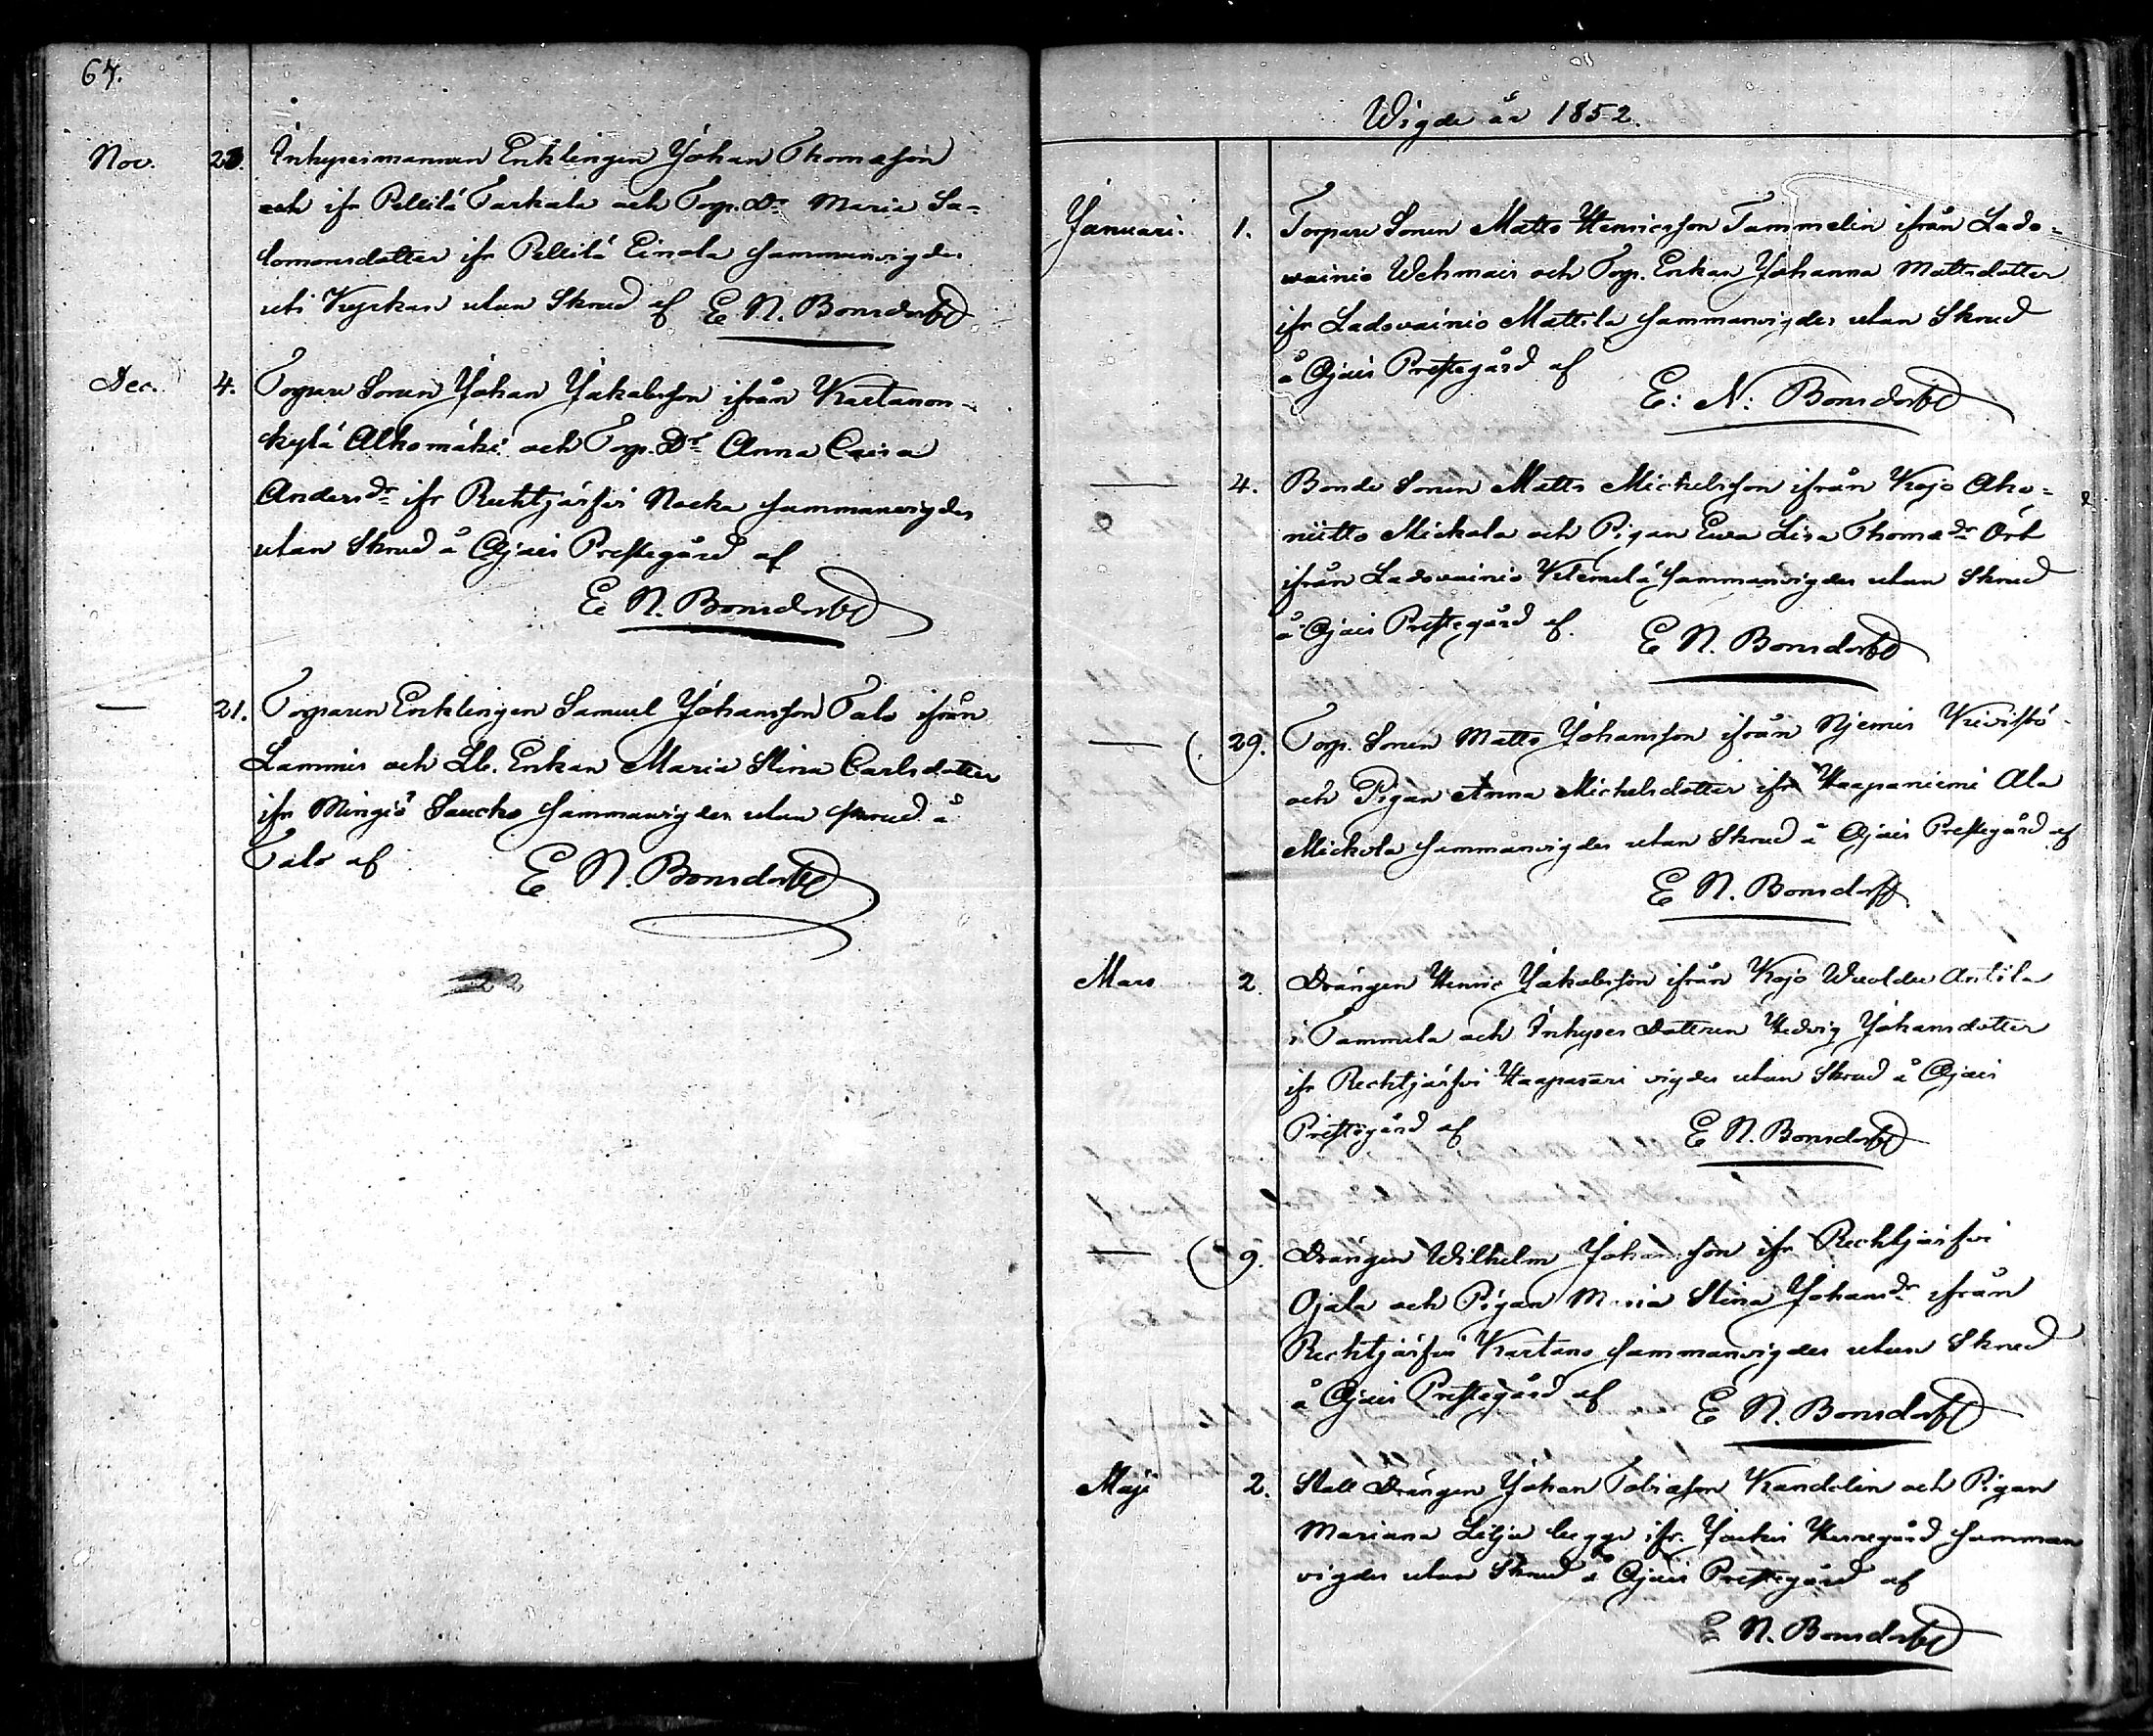 67.
Nov. 23. Inhysesmannen Enklingen Johan Thomasson
och ifr Pellilä Tarkala och Torp. Dr Maria Sa-
lomonsdotter ifr Pellilä Einola sammanvigdes
uti Kyrkan utan Skrud af E N. Bonsdorff
Dec. 4. Torpare Sonen Johan Jakobsson ifrån Kartanon-
kylä Alhomäki och Torp. Dr Anna Caisa
Anders dr ifr Rechtjärfvi Nocka sammanvigdes
utan Skrud å Ojais Prestegård af
E N. Bonsdorff
— 21. Torparen Enklingen Samuel Johansson Talo ifrån
Lammis och Enkan Maria Stina Carlsdotter
ifr Mingiö Saucko sammanvigdes utan skrud å
Talo af E N. Bonsdorff
Wigde år 1852.
Januari. 1. Torpare Sonen Matts Henricsson Tammelin ifrån Lado-
vainio Wehmais och Torp. Enkan Johanna Mattsdotter
ifr Ladovainio Mattila sammanvigdes utan Skrud
å Ojais Prestegård af
E: N: Bonsdorff
— 4. Bonde Sonen Matts Michelsson ifrån Kojo Aho-
niitto Mickola och Pigan Ewa Lisa Thomæ dr Ört
ifrån Ladovainio sammanvigdes utan Skrud
å Ojais Prestegård af. E N. Bonsdorff
— 29. Torp. Sonen Matts Johansson ifrån Njemis Kivistö
och Pigan Anna Michelsdotter ifr Haapaniemi Ala
Mickola sammanvigdes utan Skrud å Ojais Prestegård af
E N. Bonsdorff
Mars 2. Drängen Henric Jakobsson ifrån Kojo Antila
i Tammela och Inhyses Dottren Hedvig Johansdotter
ifr Rechtjärfvi Haapasari vigdes utan Skrud å Ojais
Prestegård af E N. Bonsdorff
— 9. Drängen Wilhelm Johansson ifr Rechtjärfvi
Ojala och Pigan Maria Stina Johans dr ifrån
Rechtjärfvi Kartano sammanvigdes utan Skrud
å Ojais Prestegård af E N. Bonsdorff
Maji 2. Stall Drängen Johan Tobiasson Kandelin och Pigan
Mariana Lilja begge ifr. Jockis Herregård samman
vigdes utan Skrud å Ojais Prestegård af
E N. Bonsdorff